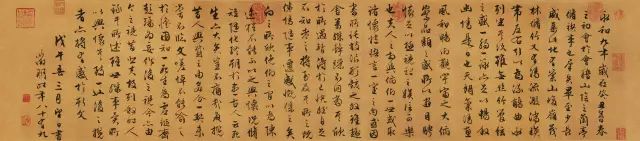 永和九年歲在癸丑暮春
之初會于會稽山陰之蘭亭
脩禊事也群賢畢至少長
咸集此地有崇山峻領茂
林脩竹又有清流激湍暎
帶左右引以為流觴曲水
列坐其次雖無絲竹管弦
之盛一觴一詠亦足以暢敘
幽情是日也天朗氣清惠
風和暢仰觀宇宙之大俯
察品類之盛所以遊目騁
懷足以極視聽之娛信可樂
也夫人之相與俯仰一世或取
諸懷抱晤言一室之內或因
寄所託放浪形骸之外雖趣
舍萬殊靜躁不同當其欣
於所遇暫得於己快然自足
不知老之將至及其所之既
倦情隨事遷感慨係之矣
向之所欣俛仰之間以為陳
迹猶不能不以之興懷況脩
短隨化終期於盡古人云死
生亦大矣豈不痛哉每攬
昔人興感之由若合一契未
嘗不臨文嗟悼不能喻之
於懷固知一死生為虛誕齊
彭殤為妄作後之視今亦由
今之視昔悲夫故列敘時人
錄其所述雖世殊事異所
以興懷其致一也後之攬
者亦將有感於斯文
戊午春三月望日書
徵明時年八十有九